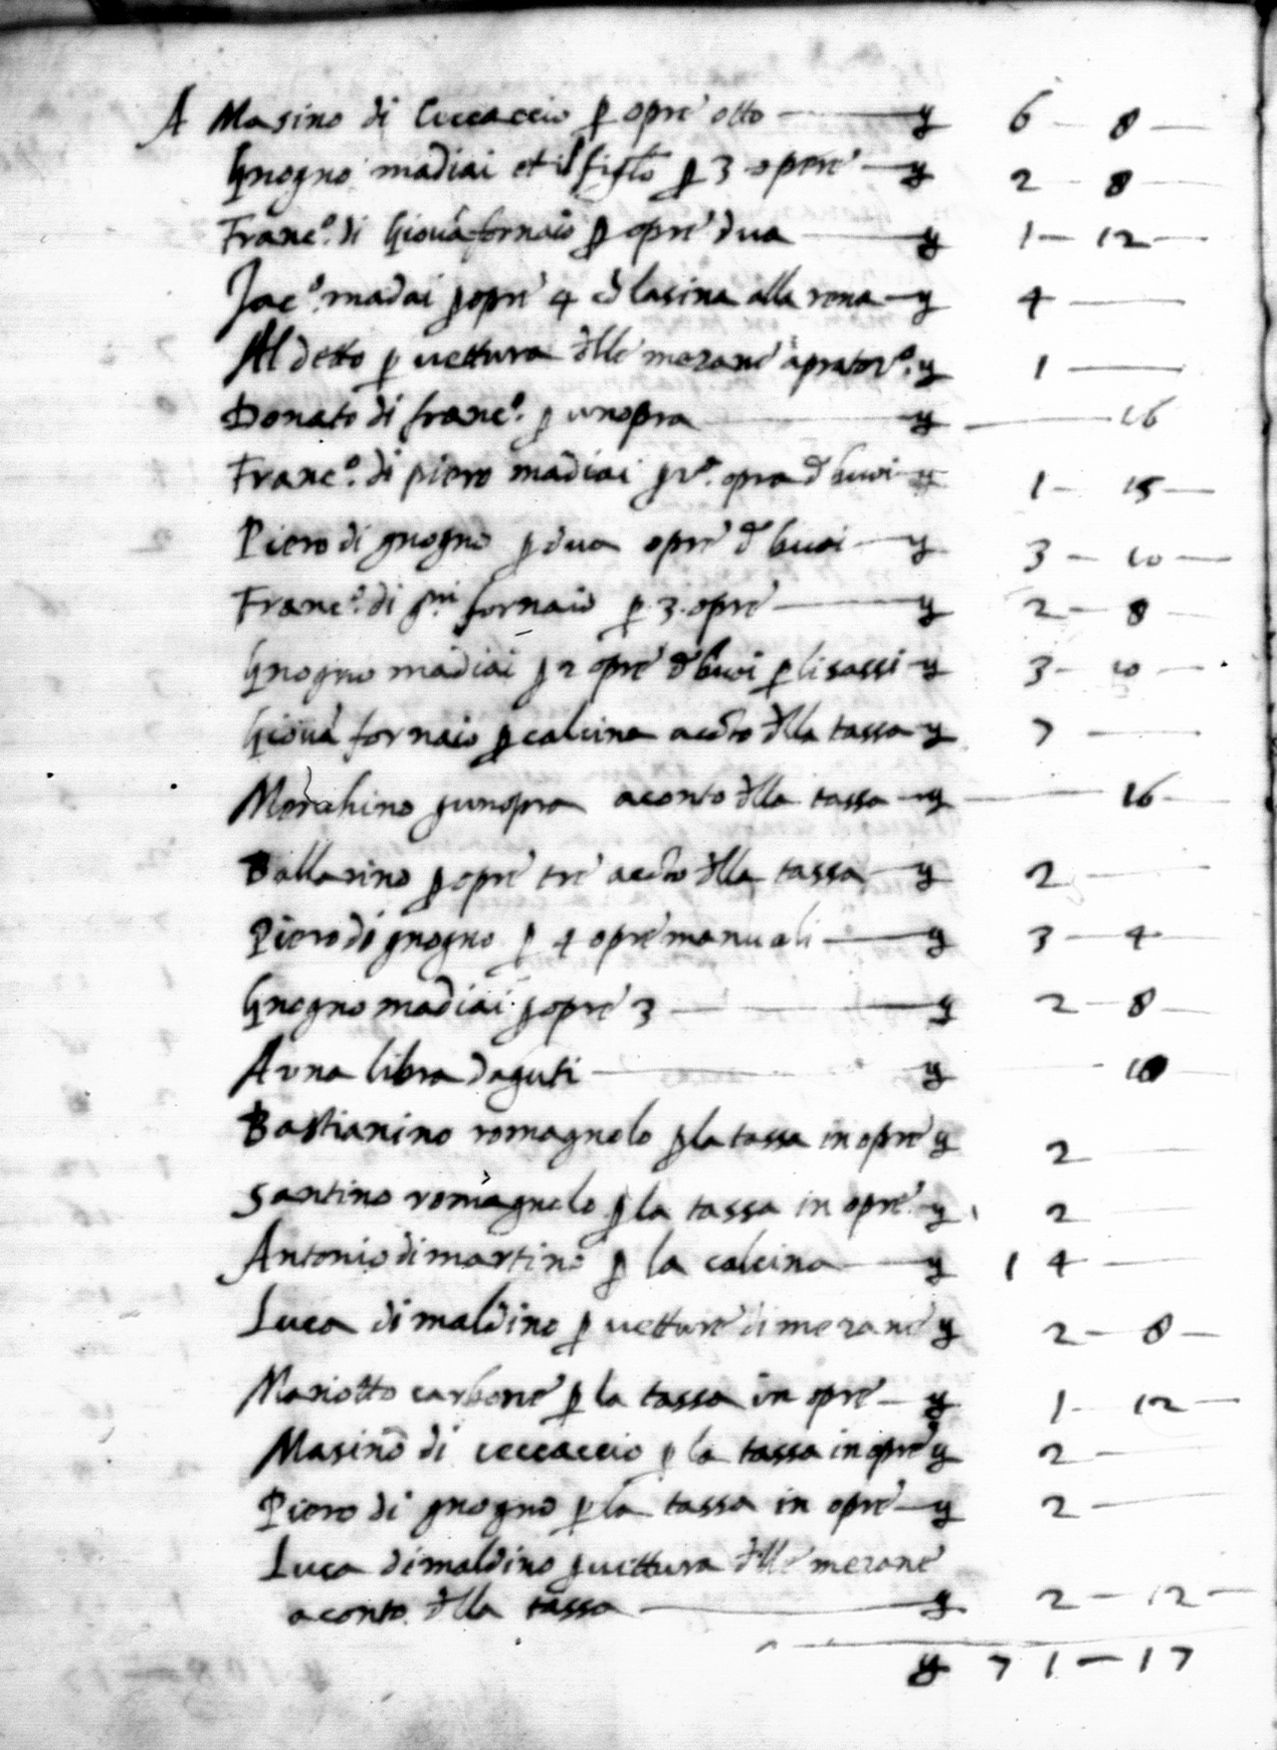 A Masino di Ceccaccio p opre otto — 6 — 8 —
Gnogno madiai et il figlo p 3 opere — 2 — 8 —
Franc.o di Giouā fornaio p opre dua — 1 — 12 —
Jac.o madai p opre 4 cō lasina alla rena — 4 —
Al detto p vettura dlle mezane a prator.o 1 —
Donato di franc.o p unopra — 16
Franc.o di piero madiai opra d buoi 1 — 15 —
Piero di gnogno p dua opre d buoi — 3 — 10 —
Franc.o di fornaio p 3 opre — 2 — 8 —
Gnogno madiai p 2 opre d buoi p li sassi — 3 — 10 —
Giouā fornaio p calcina acōto dlla tassa 7 —
Morchino p unopra aconto dlla tassa — 16 —
Ballarino p opre tre acōto dlla tassa — 2 —
Piero di gnogno p 4 opre manuali — 3 — 4 —
Gnogno madiai p opre 3 — 2 — 8 —
A vna libra daguti —
Bastianino romagnolo p la tassa in opre 2 —
Santino romagnolo p la tassa in opre 2 —
Antonio di martino p la calcina — 14 —
Luca di maldino p vetture di mezane 2 — 8 —
Mariotto carbone p la tassa in opre — 1 — 12 —
Masino di ceccaccio p la tassa in opre 2 —
Piero di gnogno p la tassa in opre — 2 —
Luca di maldino p vettura dlle mezane
aconto dlla tassa — 2 — 12 —
71 — 17